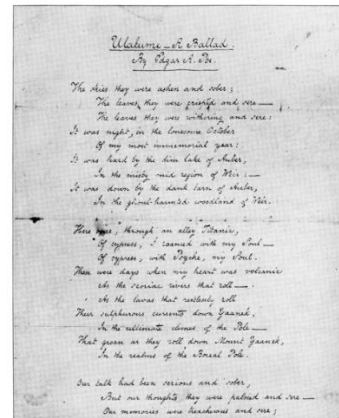 Ulalume — A Ballad.
By Edgar A. Poe.
The skies they were ashen and sober;
The leaves they were crispéd and sere —
The leaves they were withering and sere:
It was night, in the lonesome October
Of my most immemorial year:
It was hard by the dim lake of Auber,
In the misty mid region of Weir: —
It was down by the dank tarn of Auber,
In the ghoul-haunted woodland of Weir.
Here once, through an alley Titanic,
Of cypress, I roamed with my Soul —
Of cypress, with Psyche, my Soul.
These were days when my heart was volcanic
As the scoriac rivers that roll —
As the lavas that restlessly roll
Their sulphurous currents down Yaanek,
In the ultimate climes of the Pole —
That groan as they roll down Mount Yaanek,
In the realms of the Boreal Pole.
Our talk had been serious and sober,
But our thoughts they were palsied and sere —
Our memories were treacherous and sere;